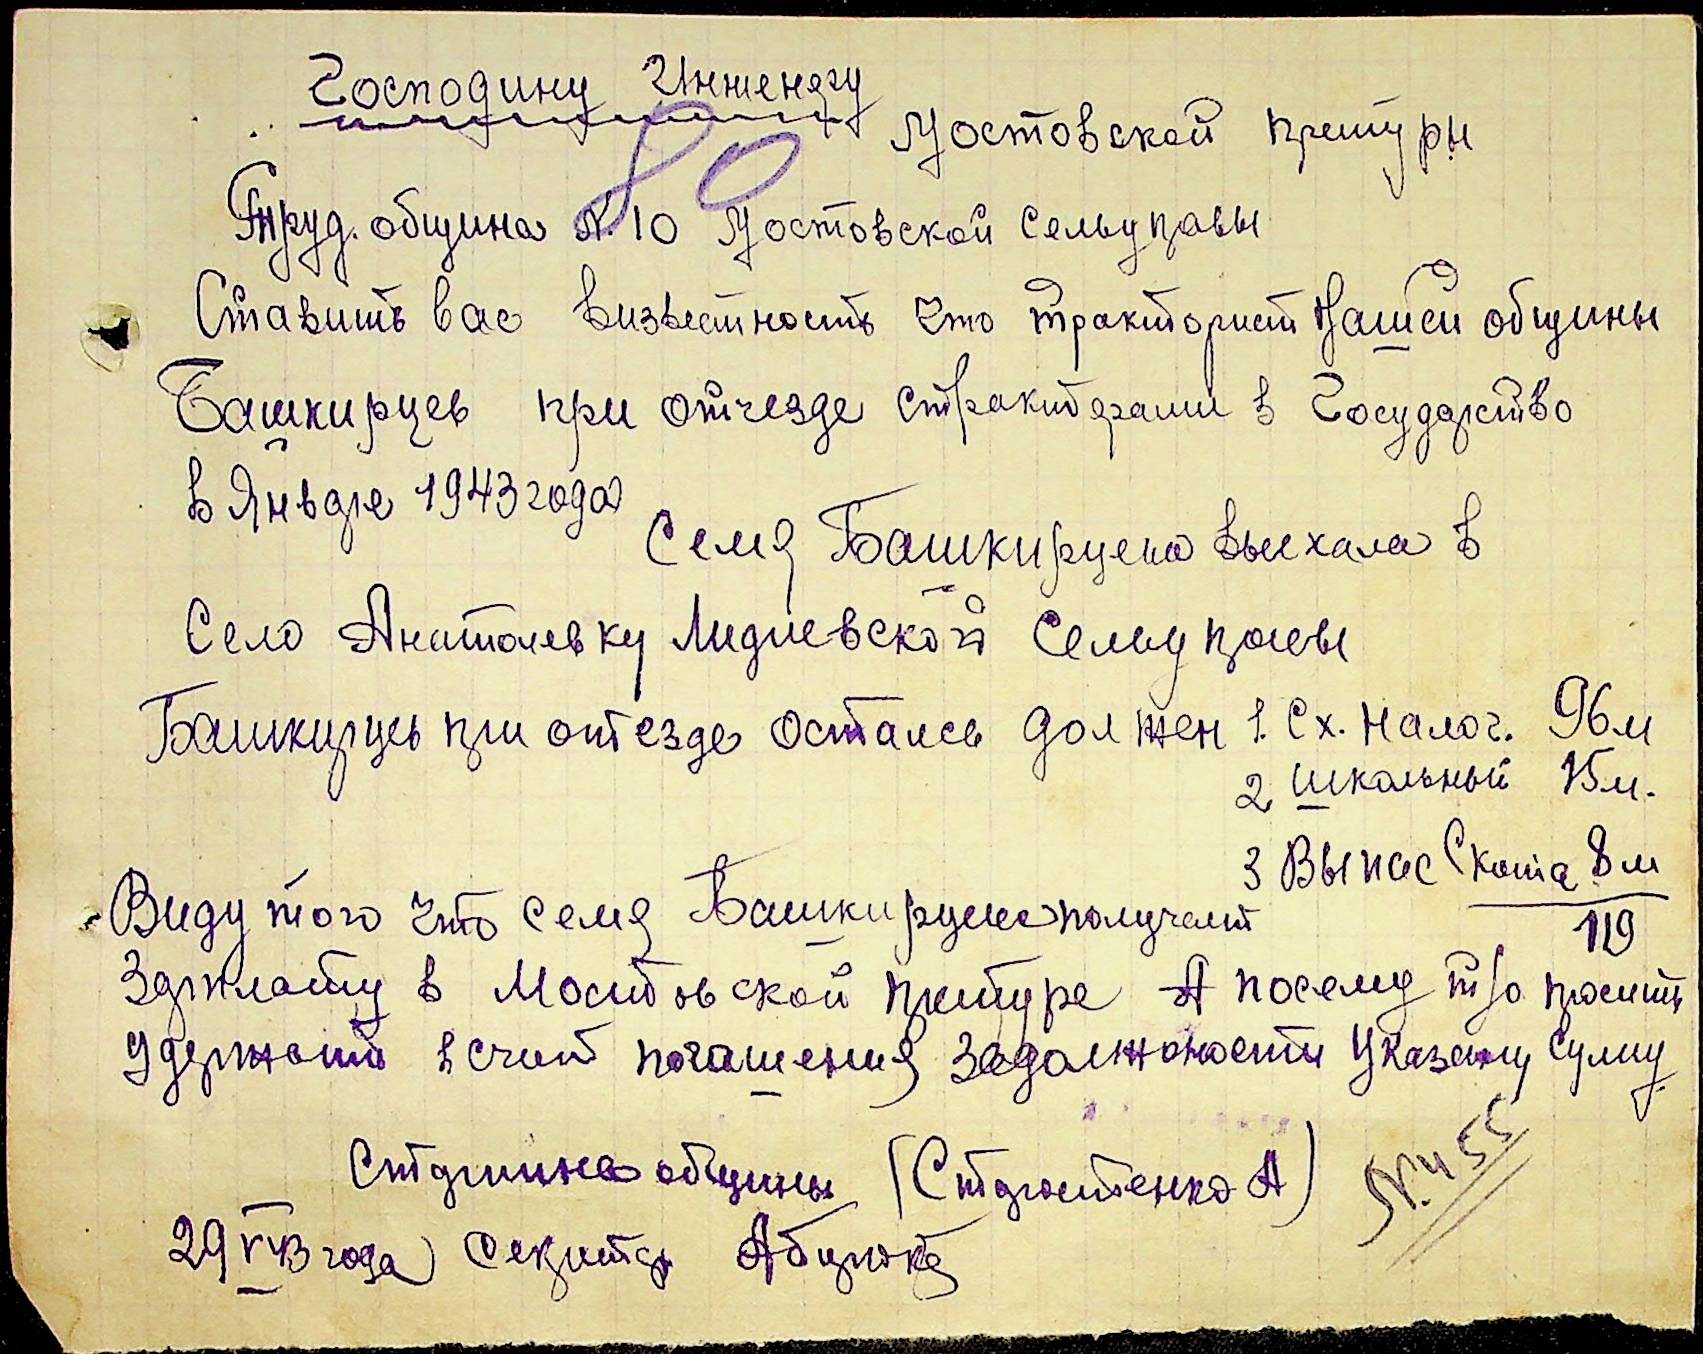 Господину Инженеру
80
Мостовской претуры
Труд. община №.10 Мостовской Сельуправы
Ставить вас визвестность что тракторист Нашей общины
Башкирцев при отъезде стракторами в Государство
в Январе 1943 года
Семя Башкирцева выехала в
Село Анатолевку Лидиевской Сельуправы
Башкирцев при отезде остался должен 1. Сх. налог. 96 м
2 школьный 15 м.
3 Выпас Скота 8 м
119
Виду того что семя Башкирцева получает
Зарплату в Мостовской претуре А посему т/о просить
Удержать в счет погашения задолжоности указану сумму
Старшина общины (Старостенко А)
№ 455
29 V 43 года Секретар